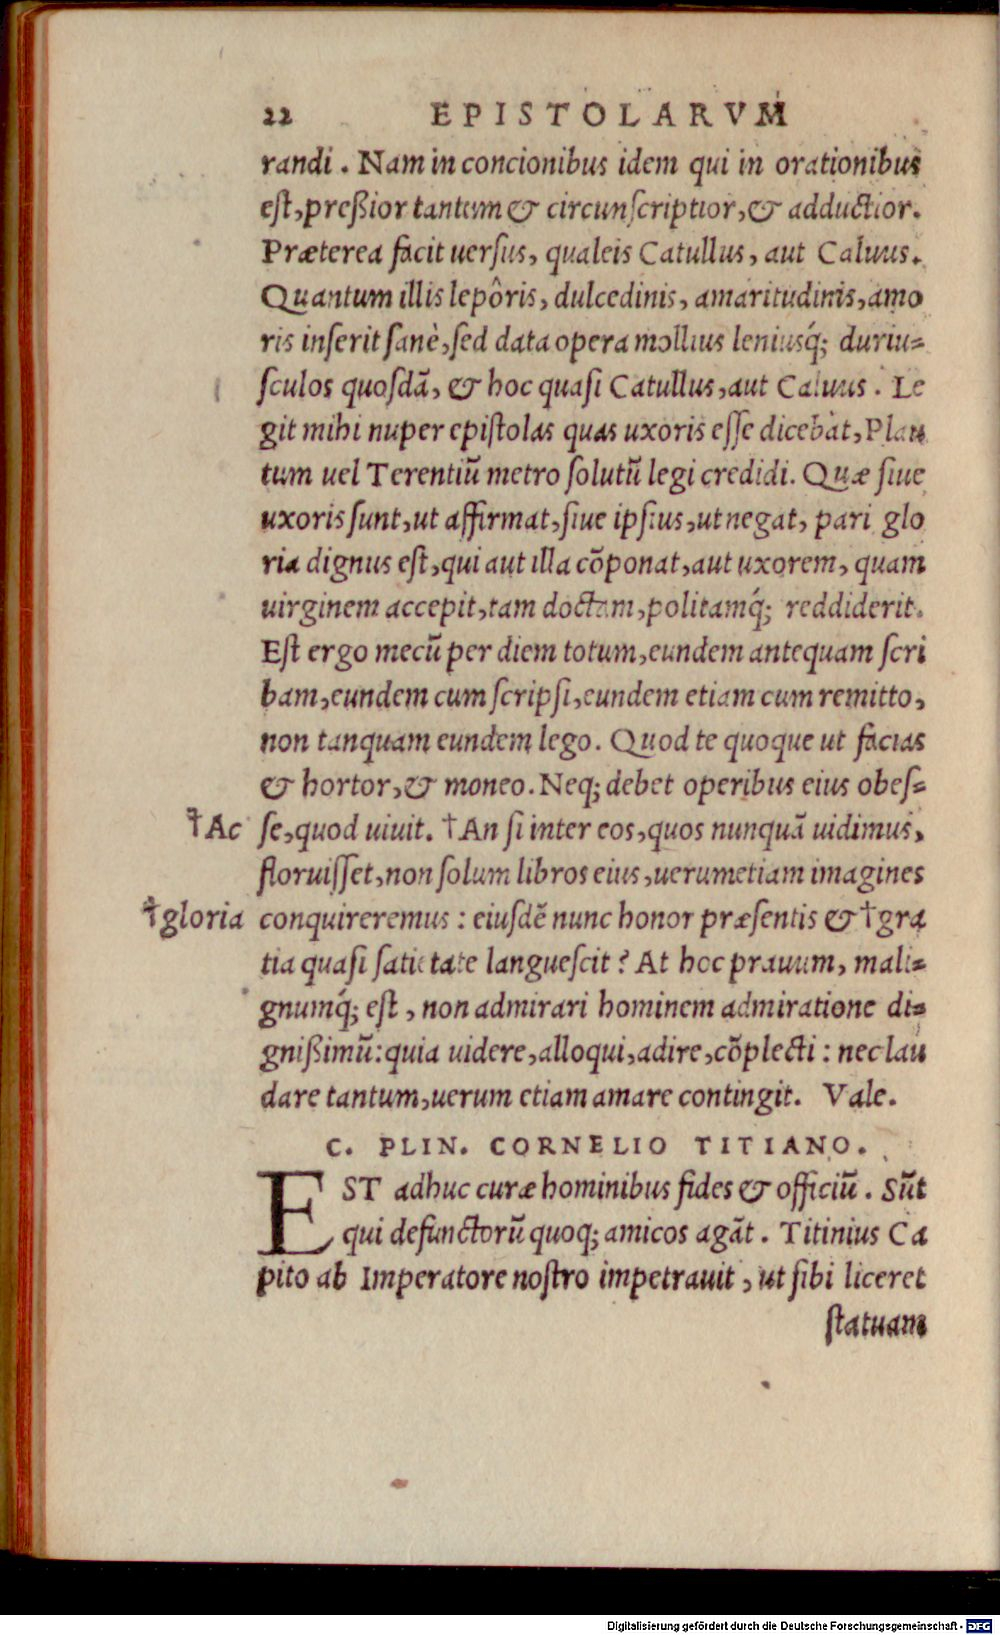 22 EPISTOLARVM
randi. Nam in concionibus idem qui in orationibus
est, preßior tantum & circunscriptior, & adductior.
Præterea facit uersus, qualeis Catullus, aut Caluus.
Quantum illis lepôris, dulcedinis, amaritudinis, amo
ris inserit sanè, sed data opera mollius leniusq́; duriu-
sculos quosdã, & hoc quasi Catullus, aut Caluus. Le
git mihi nuper epistolas quas uxoris esse dicebat, Plau
tum uel Terentiũ metro solutũ legi credidi. Quæ siue
uxoris sunt, ut affirmat, siue ipsius, ut negat, pari glo
ria dignus est, qui aut illa cõponat, aut uxorem, quam
uirginem accepit, tam doctam, politamq́; reddiderit.
Est ergo mecũ per diem totum, eundem antequam scri
bam, eundem cum scripsi, eundem etiam cum remitto,
non tanquam eundem lego. Quod te quoque ut facias
& hortor, & moneo. Neq; debet operibus eius obes-
†Ac se, quod uiuit. †An si inter eos, quos nunquã uidimus,
floruisset, non solum libros eius, uerumetiam imagines
†gloria conquireremus: eiusdẽ nunc honor præsentis & †gra
tia quasi satietate languescit? At hoc prauum, mali-
gnumq́; est, non admirari hominem admiratione di-
gnißimũ: quia uidere, alloqui, adire, cõplecti: nec lau
dare tantum, uerum etiam amare contingit. Vale.
C. PLIN. CORNELIO TITIANO.
EST adhuc curæ hominibus fides & officiũ. Sũt
qui defunctorũ quoq; amicos agãt. Titinius Ca
pito ab Imperatore nostro impetrauit, ut sibi liceret
statuam
Digitalisierung gefördert durch die Deutsche Forschungsgemeinschaft - DFG